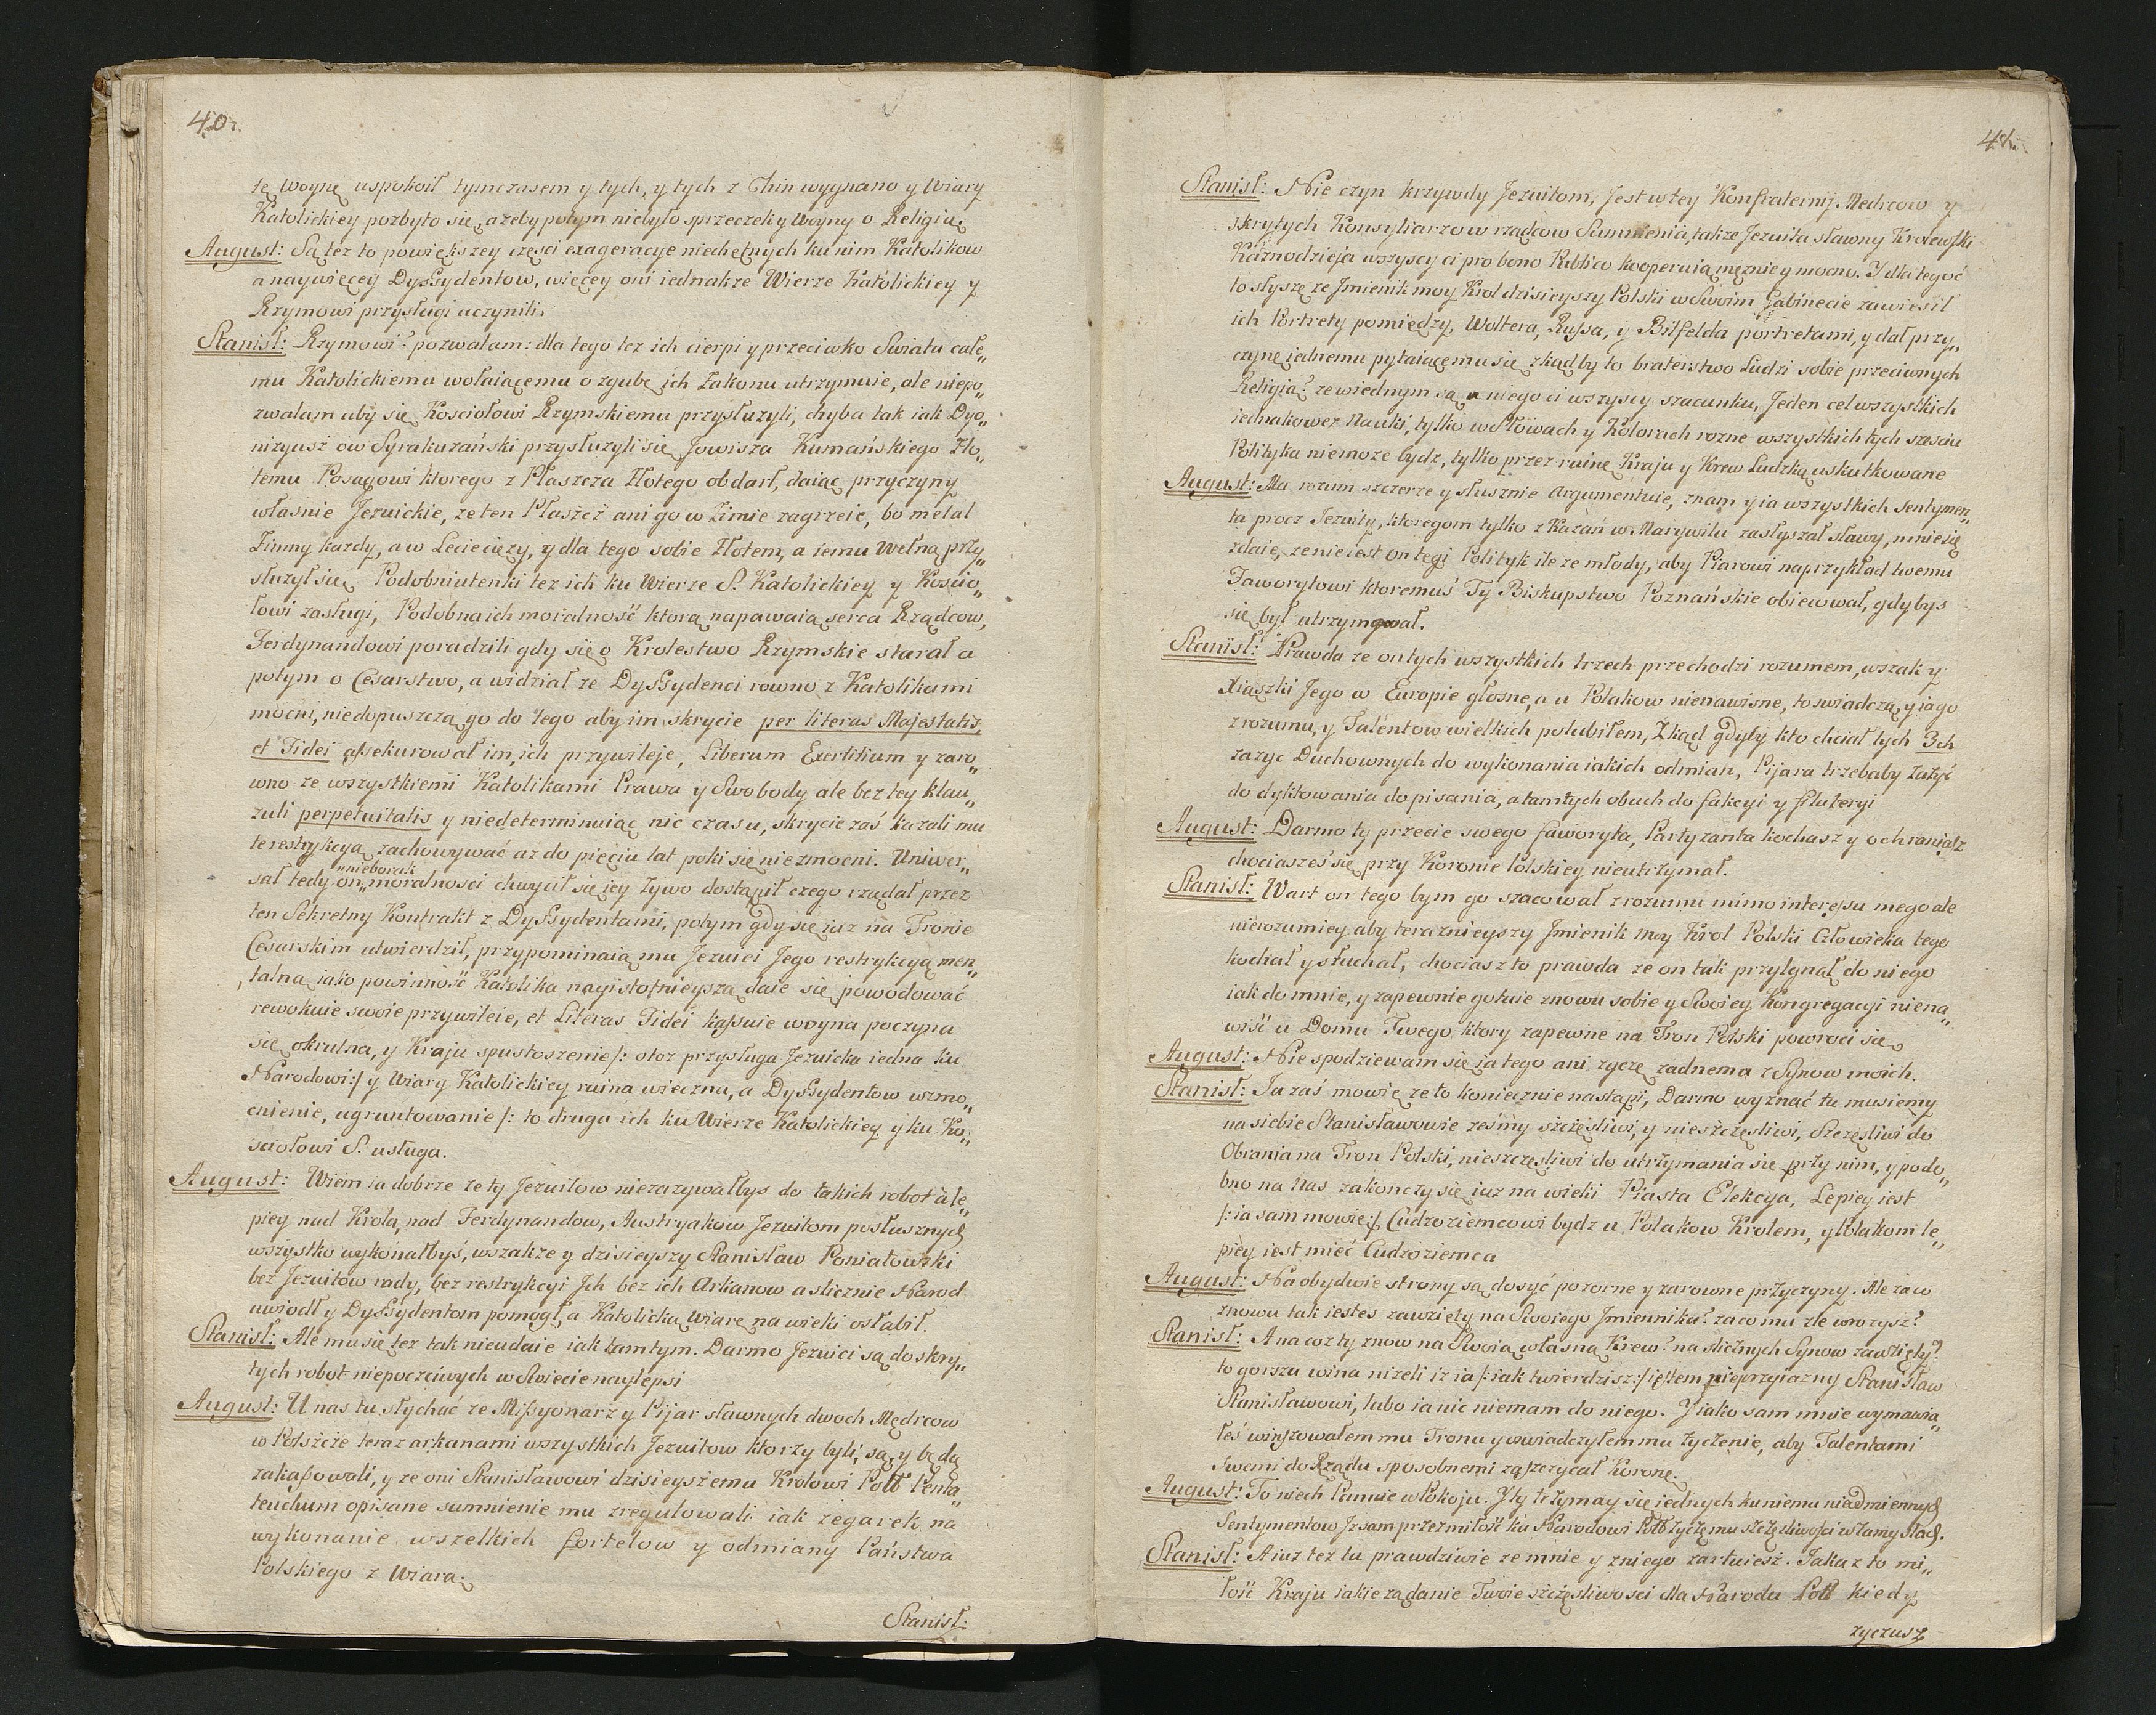 40.
tę woynę uspokoił tymczasem y tych, y tych z Chin wygnano y Wiary
Katolickiey pozbyto się, ażeby potym niebyło sprzeczek y Woyny o Religią.
August: Są też to powiększey częsci exageracye niechętnych ku nim Katolikow
a naywięcey Dyssydentow, więcey oni iednakże Wierze Katolickiey y
Rzymowi przysługi uczynili.
Stanisł: Rzymowi? pozwalam: dla tego też ich cierpi y przeciwko Swiatu całe„
mu Katolickiemu wołaiącemu o zgubę ich Zakonu utrzymuie, ale niepo„
zwalam aby się Kosciołowi Rzymskiemu przysłużyli, chyba tak iak Dyo„
nizyusz ow Syrakuzański przysłużyli się Jowisza Kumańskiego Zło„
temu Posągowi ktorego z Płaszcza Złotego obdarł, daiąc przyczyny
własnie Jezuickie, że ten Płaszcz ani go w Zimie zagrzeie, bo metal
Zimny każdy, a w Lecie cięży, y dla tego sobie Złotem, a iemu Wełną przy„
służył się. Podobniuteńki też ich ku Wierze S. Katolickiey y Koscio„
łowi zasługi, Podobna ich moralność ktorą napawaią serca Rządcow,
Ferdynandowi poradzili gdy się o Krolestwo Rzymskie starał a
potym o Cesarstwo, a widział że Dyssydenci rowno z Katolikami
mocni, niedopuszczą go do tego aby im skrycie per literas Majestatis,
et Fidei assekurował im, ich przywileje, Liberum Exertitium y zaro„
wno ze wszystkiemi Katolikami Prawa y Swobody ale bez tey klau„
zuli perpetuitatis y niedeterminuiąc nic czasu, skrycie zaś kazali mu
te restrykcyą zachowywać aż do pięciu lat poki się niezmocni. Uniwer„
„nieborak
sał tedy on„ moralnosci chwycił się iey żywo dostąpił czego żądał przez
ten Sekretny Kontrakt z Dyssydentami, potym gdy się iuż na Tronie
Cesarskim utwierdził, przypominaią mu Jezuici Jego restrykcyą men„
talną iako powinność Katolika nayistotnieyszą daie się powodować
rewokuie swoie przywileie, et Literas Fidei kassuie woyna poczyna
się okrutna, y Kraju spustoszenie /: otoż przysługa Jezuicka iedna ku
Narodowi:/ y Wiary Katolickiey ruina wieczna, a Dyssydentow wzmo„
cnienie, ugruntowanie /: to druga ich ku Wierze Katolickiey y ku Ko„
sciołowi S. usługa.
August: Wiem ia dobrze że ty Jezuitow niezażywałbys do takich robot a le„
piey nad Krola, nad Ferdynandow, Austryakow Jezuitom posłusznych
wszystko wykonałbyś, wszakże y dzisieyszy Stanisław Poniatowski
bez Jezuitow rady, bez restrykcyi Jch bez ich Arkanow a slicznie Narod
uwiodł y Dyssydentom pomogł, a Katolicką Wiarę na wieki osłabił.
Stanisł: Ale mu się też tak nieudaie iak tamtym. Darmo Jezuici są do skry„
tych robot niepoczciwych w Swiecie naylepsi
August: U nas tu słychać że Missyonarz y Pijar sławnych dwoch Mędrcow
w Polszcze teraz arkanami wszystkich Jezuitow ktorzy byli, są, y będą
zakassowali, y że oni Stanisławowi dzisieyszemu Krolowi Poll Penta„
teuchum opisane sumnienie mu zregulowali iak zegarek na
wykonanie wszelkich fortelow y odmiany Państwa
Polskiego z Wiarą.
Stanisł:
41.
Stanisł: Nie czyn krzywdy Jezuitom, Jest w tey Konfraternij Mędrcow y
skrytych Konsyliarzow rządcow Sumnienia, także Jezuita sławny Krolewski
Kaznodzieja wszyscy ci pro bono Publico kooperuią mężnie y mocno. Y dla tegoć
to słyszę że Jmienik moy Krol dzisieyszy Polski w Swoim Gabinecie zawiesił
ich Portrety pomiędzy, Woltera, Russa, y Bilfelda portretami, y dał przy„
czynę iednemu pytaiącemu się zkądby to braterstwo Ludzi sobie przeciwnych
Religią? że w iednym są u niego ci wszyscy szacunku, Jeden cel wszystkich
iednakowez Nauki, tylko w Słowach y Kolorach rozne wszystkich tych szesciu
Polityka niemoże bydz, tylko przez ruinę Kraju y Krew Ludzką uskutkowane
August: Ma rozum szczerze y słusznie Argumentuie, znam y ia wszystkich Sentymen„
ta procz Jezuity, ktoregom tylko z Kazań w Marywilu zasłyszał sławy, mnie się
zdaie, że nie iest on tęgi Polityk ile że młody, aby Piarowi naprzykład twemu
Faworytowi ktoremuś Ty Biskupstwo Poznańskie obiecował, gdybys
się był utrzymował.
Stanisł: Prawda że on tych wszystkich trzech przechodzi rozumem, wszak y
Xiążki Jego w Europie głosne, a u Polakow nienawisne, to swiadczą, y ia go
z rozumu, y Talentow wielkich polubiłem, Zkąd gdyby kto chciał tych 3ch
zażyc Duchownych do wykonania iakich odmian, Pijara trzebaby zażyć
do dyktowania do pisania, a tamtych obuch do fakcyi y filuteryi
August: Darmo ty przecie swego faworyta, Partyzanta kochasz y ochraniasz
chociażześ się przy Koronie Polskiey nieutrzymał.
Stanisł: Wart on tego bym go szacował z rozumu mimo interessu mego ale
nierozumiey aby terazniejszy Jmienik moy Krol Polski Człowieka tego
kochał y słuchał, chociasz to prawda że on tak przylgnął do niego
iak do mnie, y zapewnie gotuie znowu sobie y Swoiey Kongregacyi niena„
wiść u Domu Twego ktory zapewne na Tron Polski powroci się.
August: Nie spodziewam się ia tego ani życzę żadnemu z Synow moich.
Stanisł: Ja zaś mowię że to koniecznie nastąpi, Darmo wyznać tu musiemy
na siebie Stanisławowie żeśmy szczęsliwi, y nieszczęsliwi, Szczęsliwi do
Obrania na Tron Polski, nieszczęsliwi do utrzymania się przy nim, y podo„
bno na Nas zakończy się iuż na wieki Piasta Elekcya, Lepiey iest
/: ia sam mowie:/ Cudzoziemcowi bydz u Polakow Krolem, y Polakom le„
piey iest mieć Cudzoziemca
August: Na obydwie strony są dosyć pozorne y zarowne przyczyny. Ale zaco
znowu tak iestes zawzięty na Swoiego Jmiennika? zaco mu zle wrożysz?
Stanisł: A na coz ty znow na Swoią własną Krew? na slicznych Synow zawzięty?
to gorsza wina niżeli iż ia /: iak twierdzisz:/ iestem nieprzyiazny Stanisław
Stanisławowi, lubo ia nic niemam do niego. Y iako sam mnie wymawia„
łeś winszowałem mu Tronu y oswiadczyłem mu życzenie, aby Talentami
Swemi do Rządu sposobnemi zaszczycał Koronę.
August: To niech Panuie w Pokoju. Y ty trzymay się iednych ku niemu nieodmiennych
Sentymentow Jż sam przez miłość ku Narodowi Poll życzę mu szczęsliwosci w zamysłach.
Stanisł: A iuż też tu prawdziwie ze mnie y z niego żartuiesz. Jakaż to mi„
łość Kraju iakie żądanie Twoie szczęsliwosci dla Narodu Poll kiedy
zyczusz